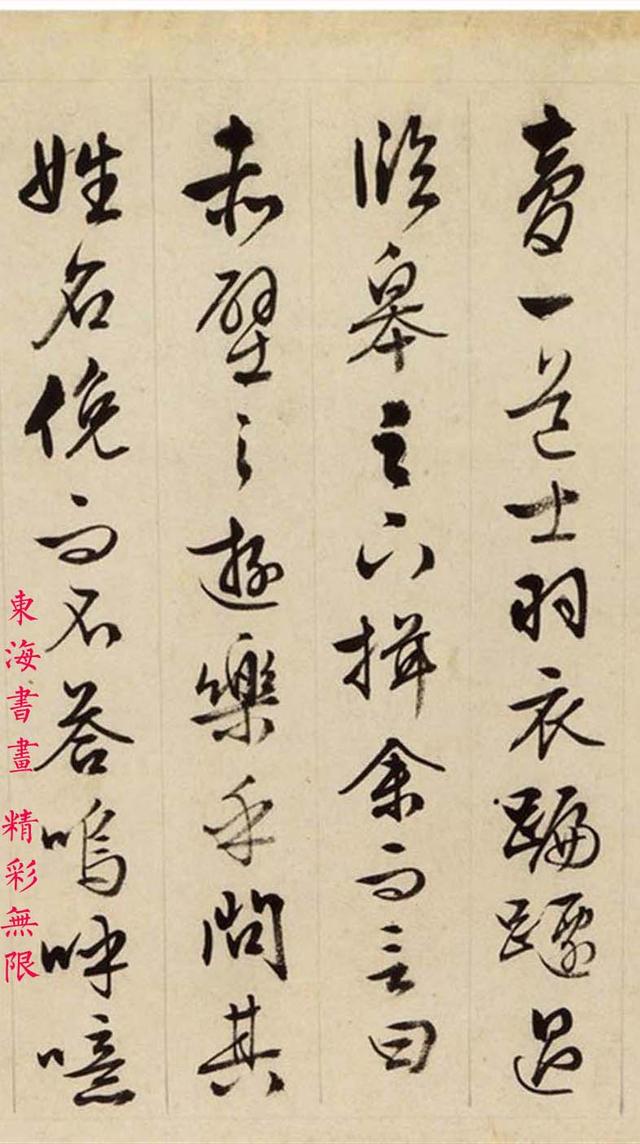 夢一道士羽衣蹁躚過
臨皋之下揖余而言曰
赤壁之遊樂乎問其
姓名俛而不答嗚呼噫
東海書畫 精彩無限